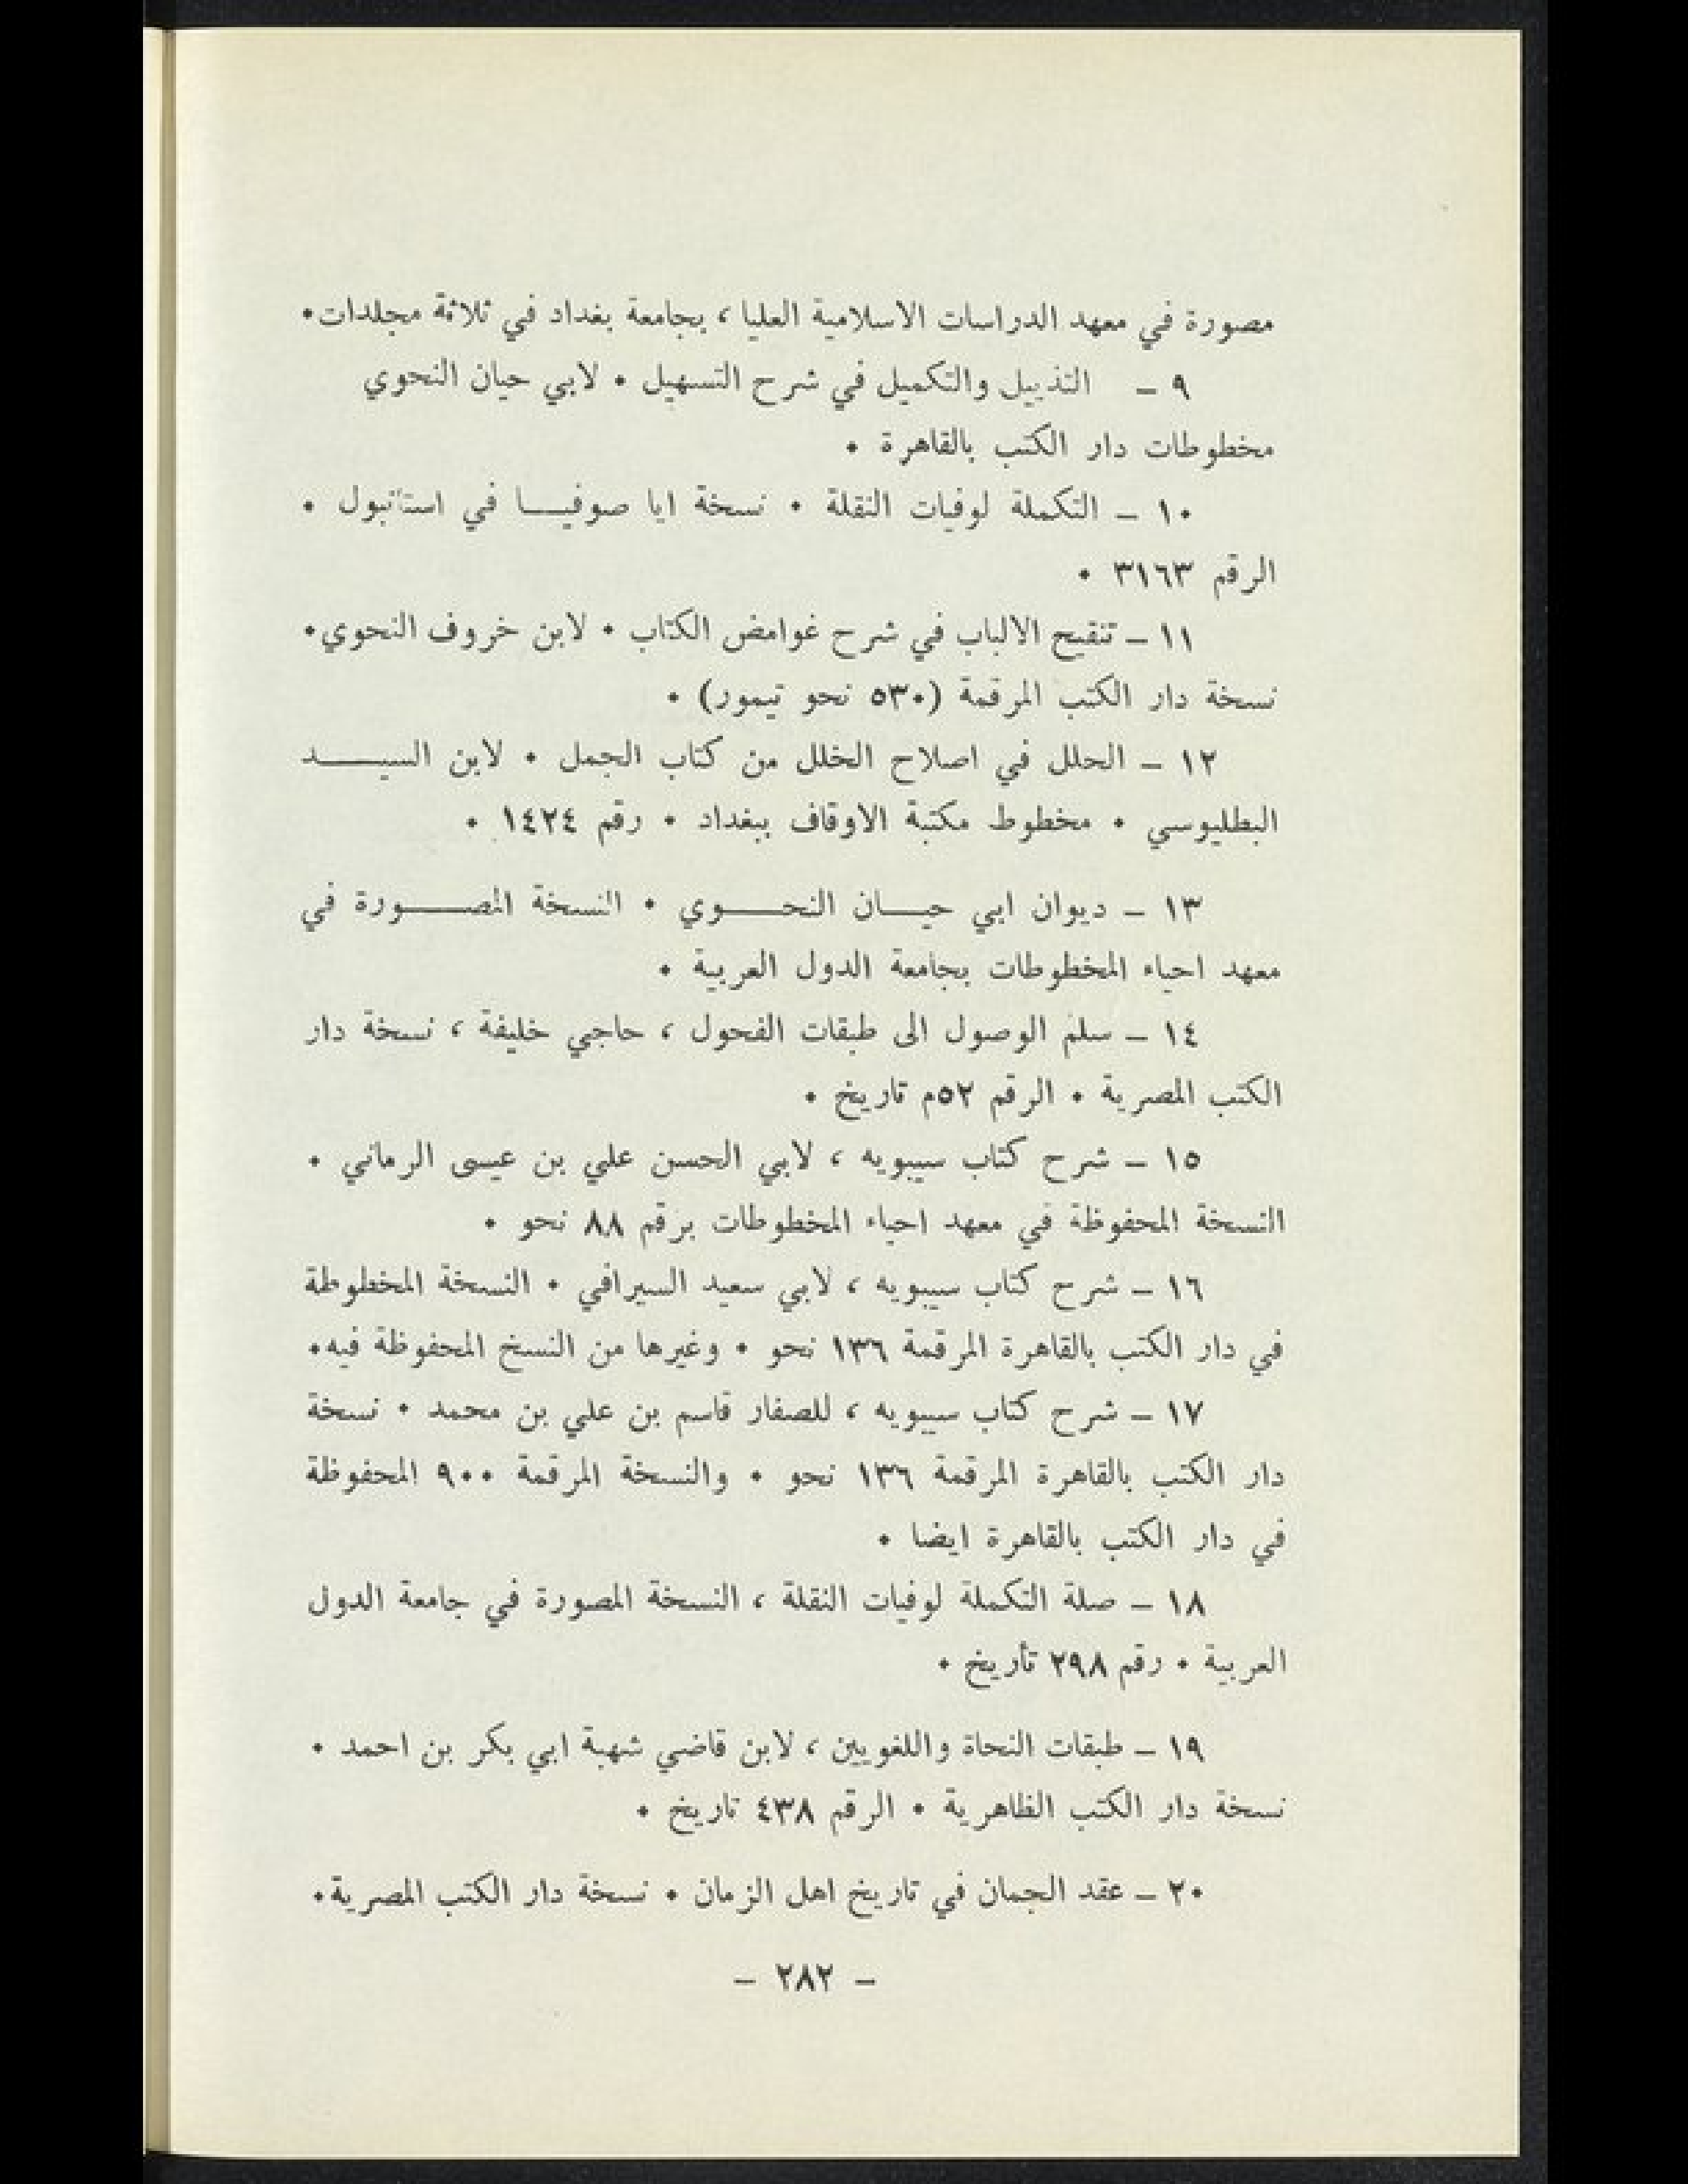 مصورة في معهد الدراسات الاسلامية العليا ، بجامعة بغداد في ثلاثة مجلدات٠
٩ ـ التذييل والتكميل في شرح التسهيل ٠ لابي حيان النحوي
مخطوطات دار الكتب بالقاهرة ٠
١٠ ـ التكملة لوفيات النقلة ٠ نسخة ايا صوفيــا في استانبول ٠
الرقم ٣١٦٣ ٠
١١ ـ تنقيح الالباب في شرح غوامض الكتاب ٠ لابن خروف النحوي٠
نسخة دار الكتب المرقمة (٥٣٠ نحو تيمور) ٠
١٢ ـ الحلل في اصلاح الخلل من كتاب الجمل ٠ لابن السيــــد
البطليوسي ٠ مخطوط مكتبة الاوقاف ببغداد ٠ رقم ١٤٢٤ ٠
١٣ ـ ديوان ابي حيــان النحــــوي ٠ النسخة المصــــورة في
معهد احياء المخطوطات بجامعة الدول العربية ٠
١٤ ـ سلم الوصول الى طبقات الفحول ، حاجي خليفة ، نسخة دار
الكتب المصرية ٠ الرقم ٥٢م تاريخ ٠
١٥ ـ شرح كتاب سيبويه ، لابي الحسن علي بن عيسى الرماني ٠
النسخة المحفوظة في معهد احياء المخطوطات برقم ٨٨ نحو ٠
١٦ ـ شرح كتاب سيبويه ، لابي سعيد السيرافي ٠ النسخة المخطوطة
في دار الكتب بالقاهرة المرقمة ١٣٦ نحو ٠ وغيرها من النسخ المحفوظة فيه٠
١٧ ـ شرح كتاب سيبويه ، للصفار قاسم بن علي بن محمد ٠ نسخة
دار الكتب بالقاهرة المرقمة ١٣٦ نحو ٠ والنسخة المرقمة ٩٠٠ المحفوظة
في دار الكتب بالقاهرة ايضا ٠
١٨ ـ صلة التكملة لوفيات النقلة ، النسخة المصورة في جامعة الدول
العربية ٠ رقم ٢٩٨ تأريخ ٠
١٩ ـ طبقات النحاة واللغويين ، لابن قاضي شهبة ابي بكر بن احمد ٠
نسخة دار الكتب الظاهرية ٠ الرقم ٤٣٨ تاريخ ٠
٢٠ ـ عقد الجمان في تاريخ اهل الزمان ٠ نسخة دار الكتب المصرية٠
ـ ٢٨٢ ـ